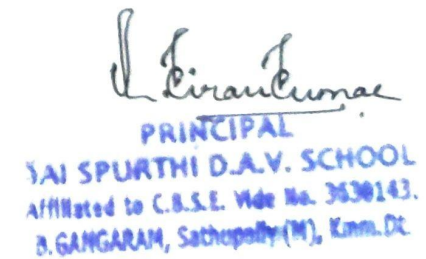 Kiran Kumar
PRINCIPAL
SAI SPURTHI D.A.V. SCHOOL
Affiliated to C.B.S.E. Vide No. 3630143.
B.GANGARAM, Sathupally (M), Kmm.Dt.